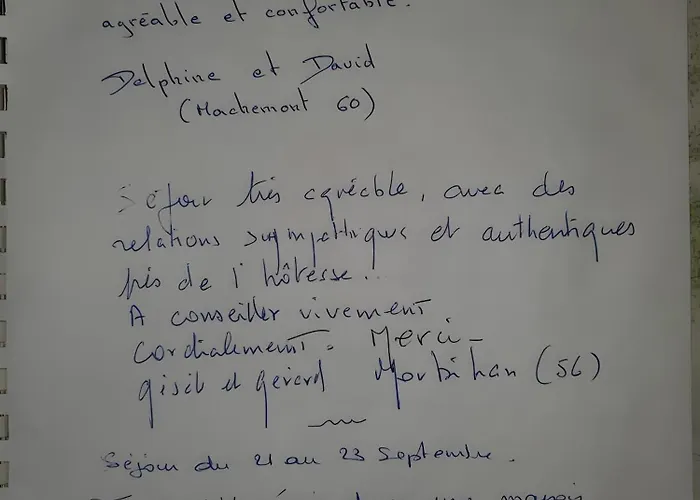 agréable et confortable.
Delphine et David
(Machemont 60)
Séjour très agréable, avec des
relations sympathiques et authentiques
près de l'hôtesse..
A conseiller vivement
Cordialement. Merci -
gisèl et gérard Morbihan (56)
Séjour du 21 au 23 Septembre.
manoir